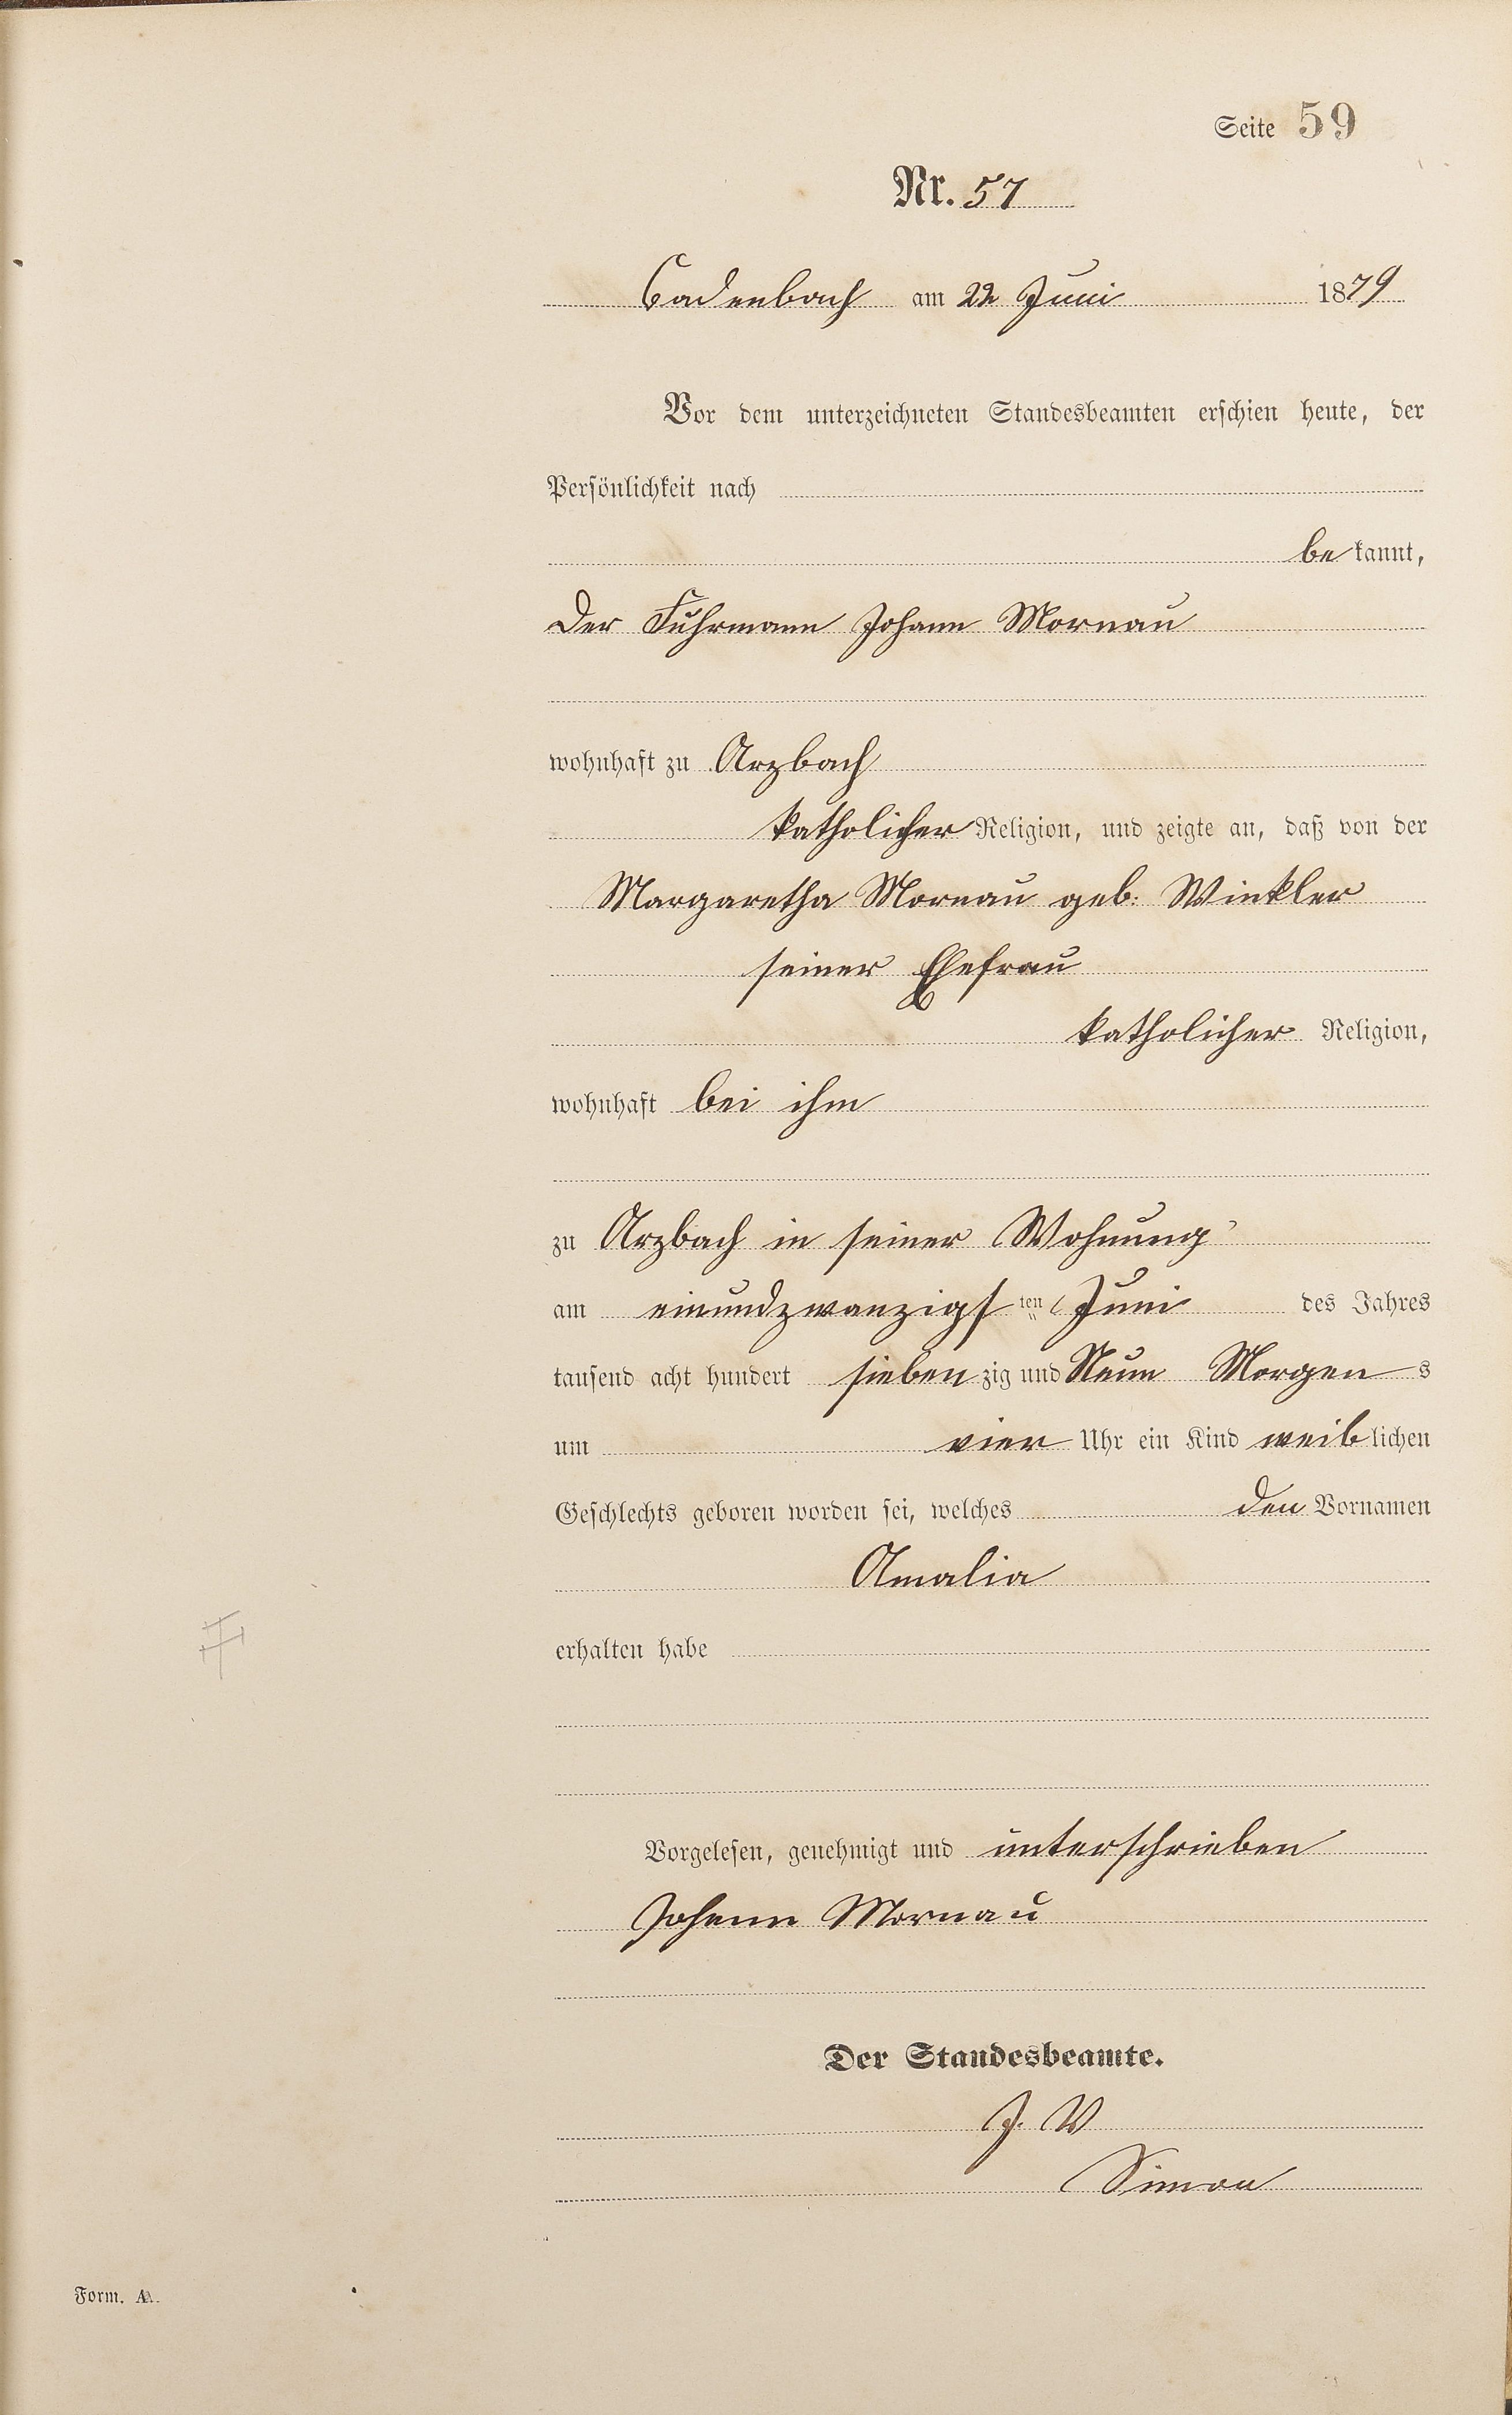 Seite 59
Nr. 57
Cadenbach am 22 Juni 1879
Vor dem unterzeichneten Standesbeamten erschien heute, der
Persönlichkeit nach
bekannt,
Der Fuhrmann Johann Mornau
wohnhaft zu Arzbach
katholicher Religion, und zeigte an, daß von der
Margaretha Mornau geb: Winkler
seiner Ehefrau
katholicher Religion,
wohnhaft bei ihm
zu Arzbach in seiner Wohnung
am einundzwanzigsten Juni des Jahres
tausend acht hundert siebenzig und Neun Morgens
um vier Uhr ein Kind weiblichen
Geschlechts geboren worden sei, welches den Vornamen
Amalia
erhalten habe
Vorgelesen, genehmigt und unterschrieben
Johann Mornau
Der Standesbeamte.
J. V
Simon
Form. A.